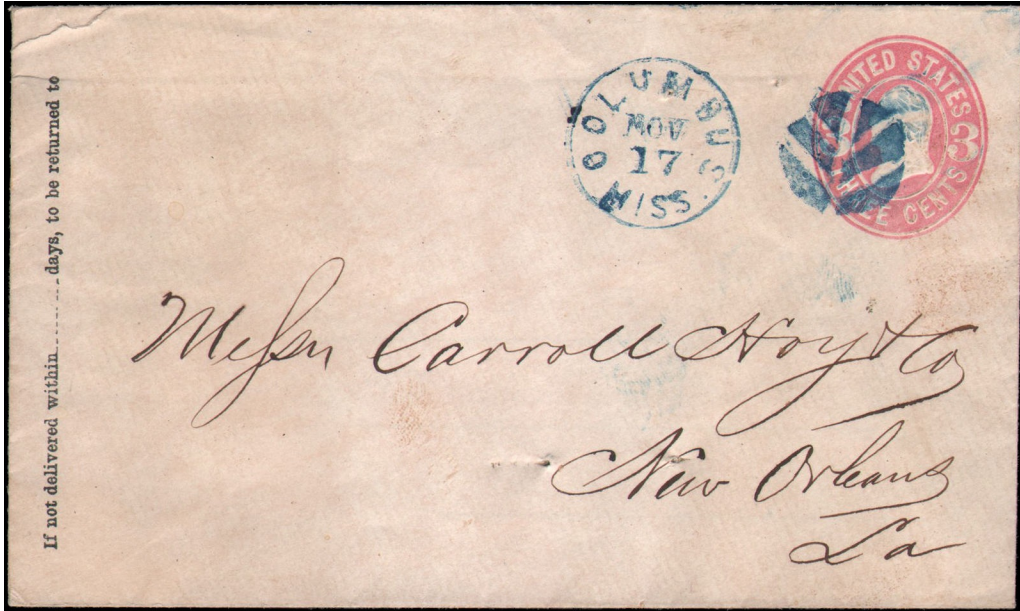 If not delivered within.........days, to be returned to
COLUMBUS
NOV
17
MISS.
UNITED STATES
3
THREE CENTS
Messrs Carroll Hoy & Co
New Orleans
La